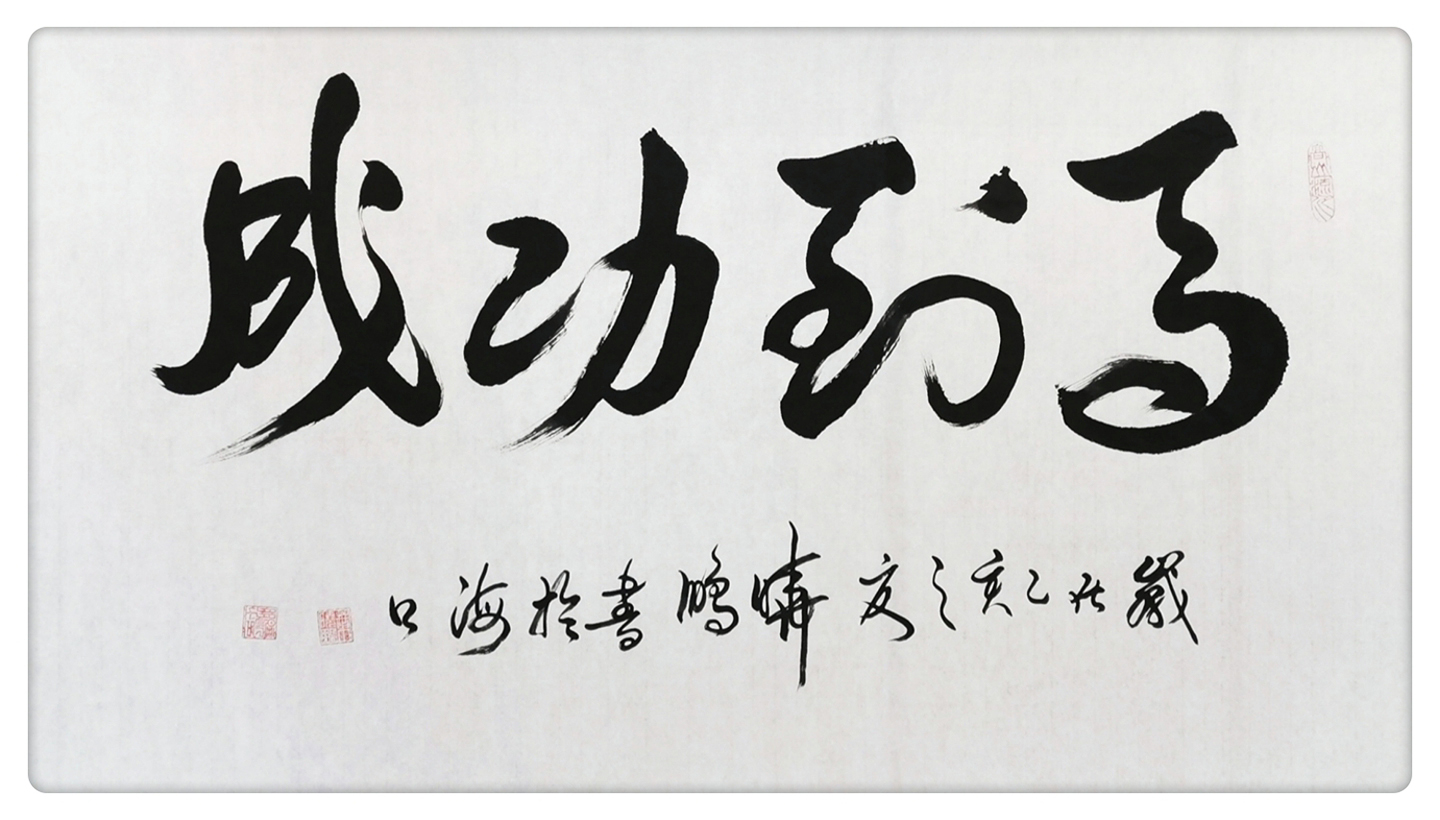 马到功成
岁在己亥之夏晴鹏书于海口